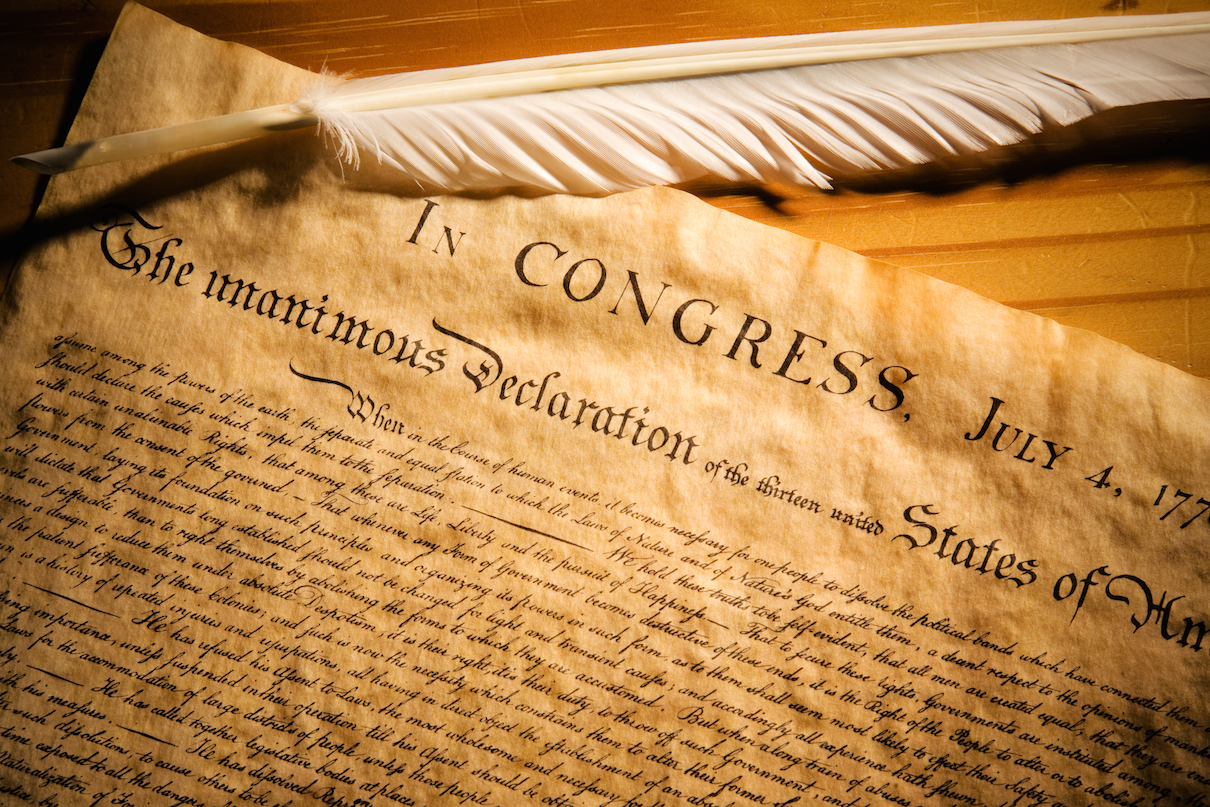 In CONGRESS, July 4, 177
The unanimous Declaration of the thirteen united States of Am
When in the Course of human events, it becomes necessary for one people to dissolve the political bands which have connected them
assume among the powers of the earth, the separate and equal station to which the Laws of Nature and of Nature's God entitle them, a decent respect to the opinions of mank
should declare the causes which impel them to the separation. —— We hold these truths to be self-evident, that all men are created equal, that they are en
with certain unalienable Rights, that among these are Life, Liberty and the pursuit of Happiness.— That to secure these rights, Governments are instituted among
powers from the consent of the governed, — That whenever any Form of Government becomes destructive of these ends, it is the Right of the People to alter or to abol
Government, laying its foundation on such principles and organizing its powers in such form, as to them shall seem most likely to effect their Safety
will dictate that Governments long established should not be changed for light and transient causes; and accordingly all experience hath shewn
are sufferable, than to right themselves by abolishing the forms to which they are accustomed. But when a long train of abuses
a design to reduce them under absolute Despotism, it is their right, it is their duty, to throw off such Government, and
the patient sufferance of these Colonies; and such is now the necessity which constrains them to alter their former
is a history of repeated injuries and usurpations, all having in direct object the establishment of an
—— He has refused his Assent to Laws, the most wholesome and necessary
importance, unless suspended in their operation till his Assent should be
Laws for the accommodation of large districts of people, unless those people
—— He has called together legislative bodies at places
his measures. —— He has dissolved Repres
such dissolutions, to cause others to be
time exposed to all the dangers
Naturalization of